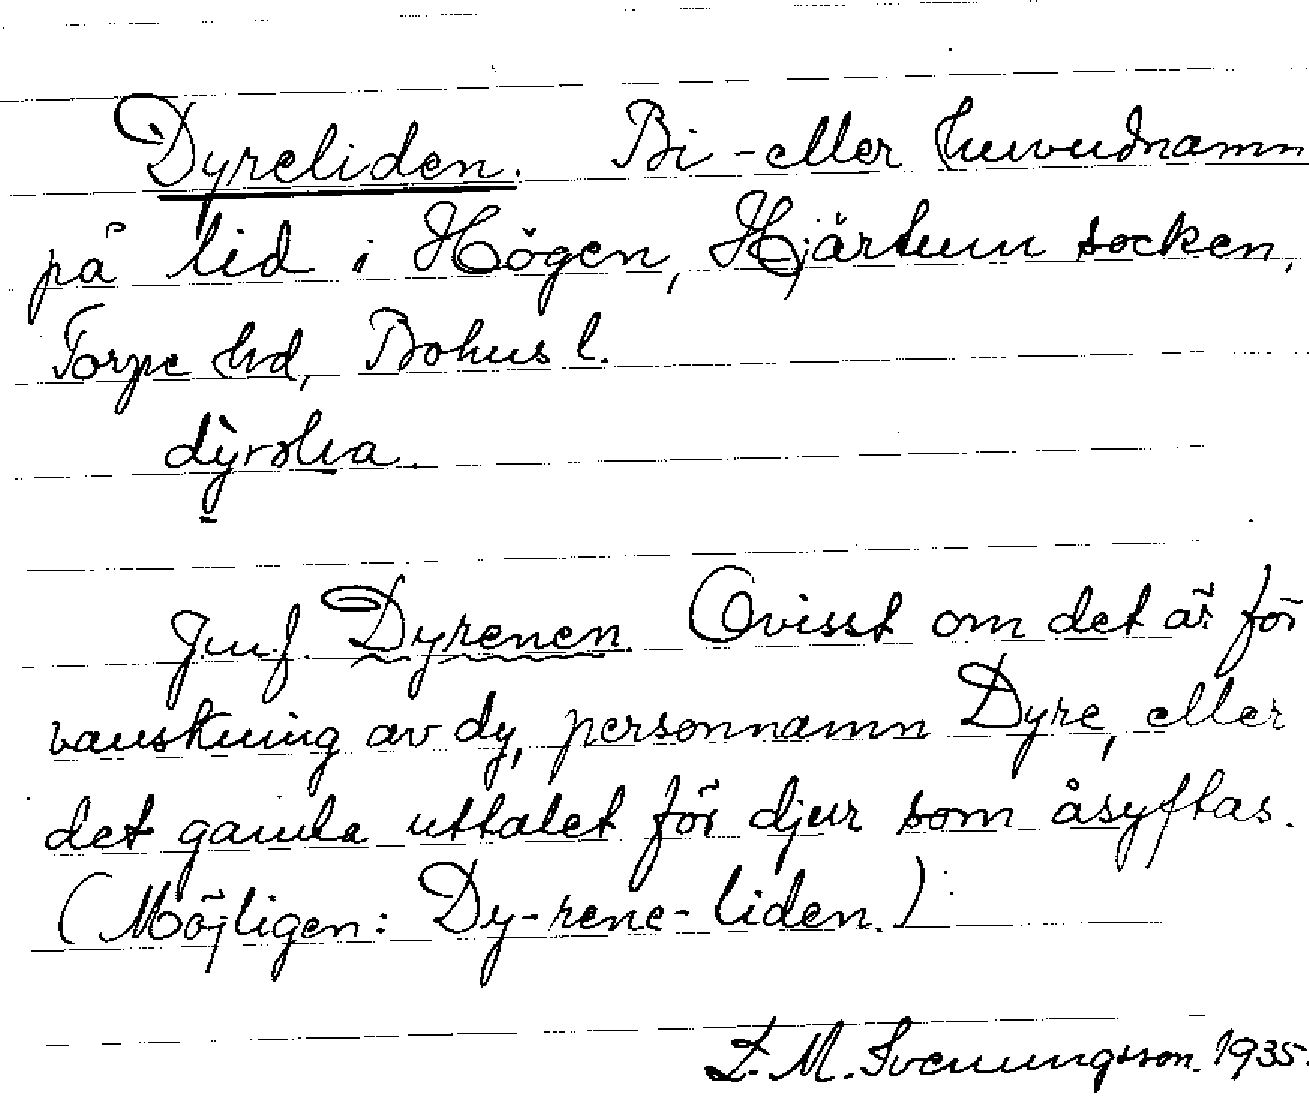 Dyreliden. Bi-eller huvudnamn
på lid i Högen, Hjärtum socken,
Torpe hd, Bohus l.
Jmf Dyrenen. Ovisst om det är för
vanskning av dy, personnamn Dyre, eller
det gamla uttalet för djur som åsyftas.
(Möjligen: Dy-rene-liden.)
M. Svenungsson. 1935.